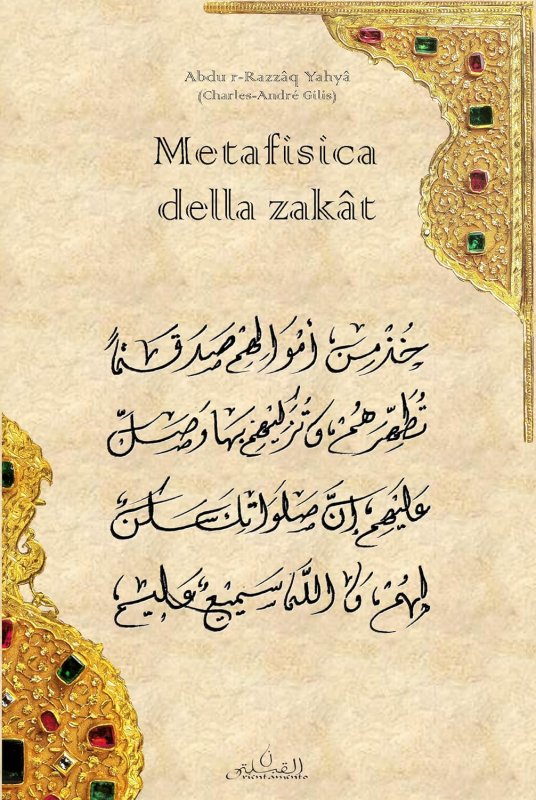 Abdu r-Razzâq Yahyâ
(Charles-André Gilis)
Metafisica
della zakât
خُذْ مِنْ أَمْوَالِهِمْ صَدَقَتاً
تُطَهِّرُهُمْ وَتُزَكِّيهِمْ بِهَا وَصَلِّ
عَلَيْهِمْ إِنَّ صَلَوَاتِكَ سَكَنٌ
لَهُمْ وَاللَّهُ سَمِيعٌ عَلِيمٌ
Orientamento